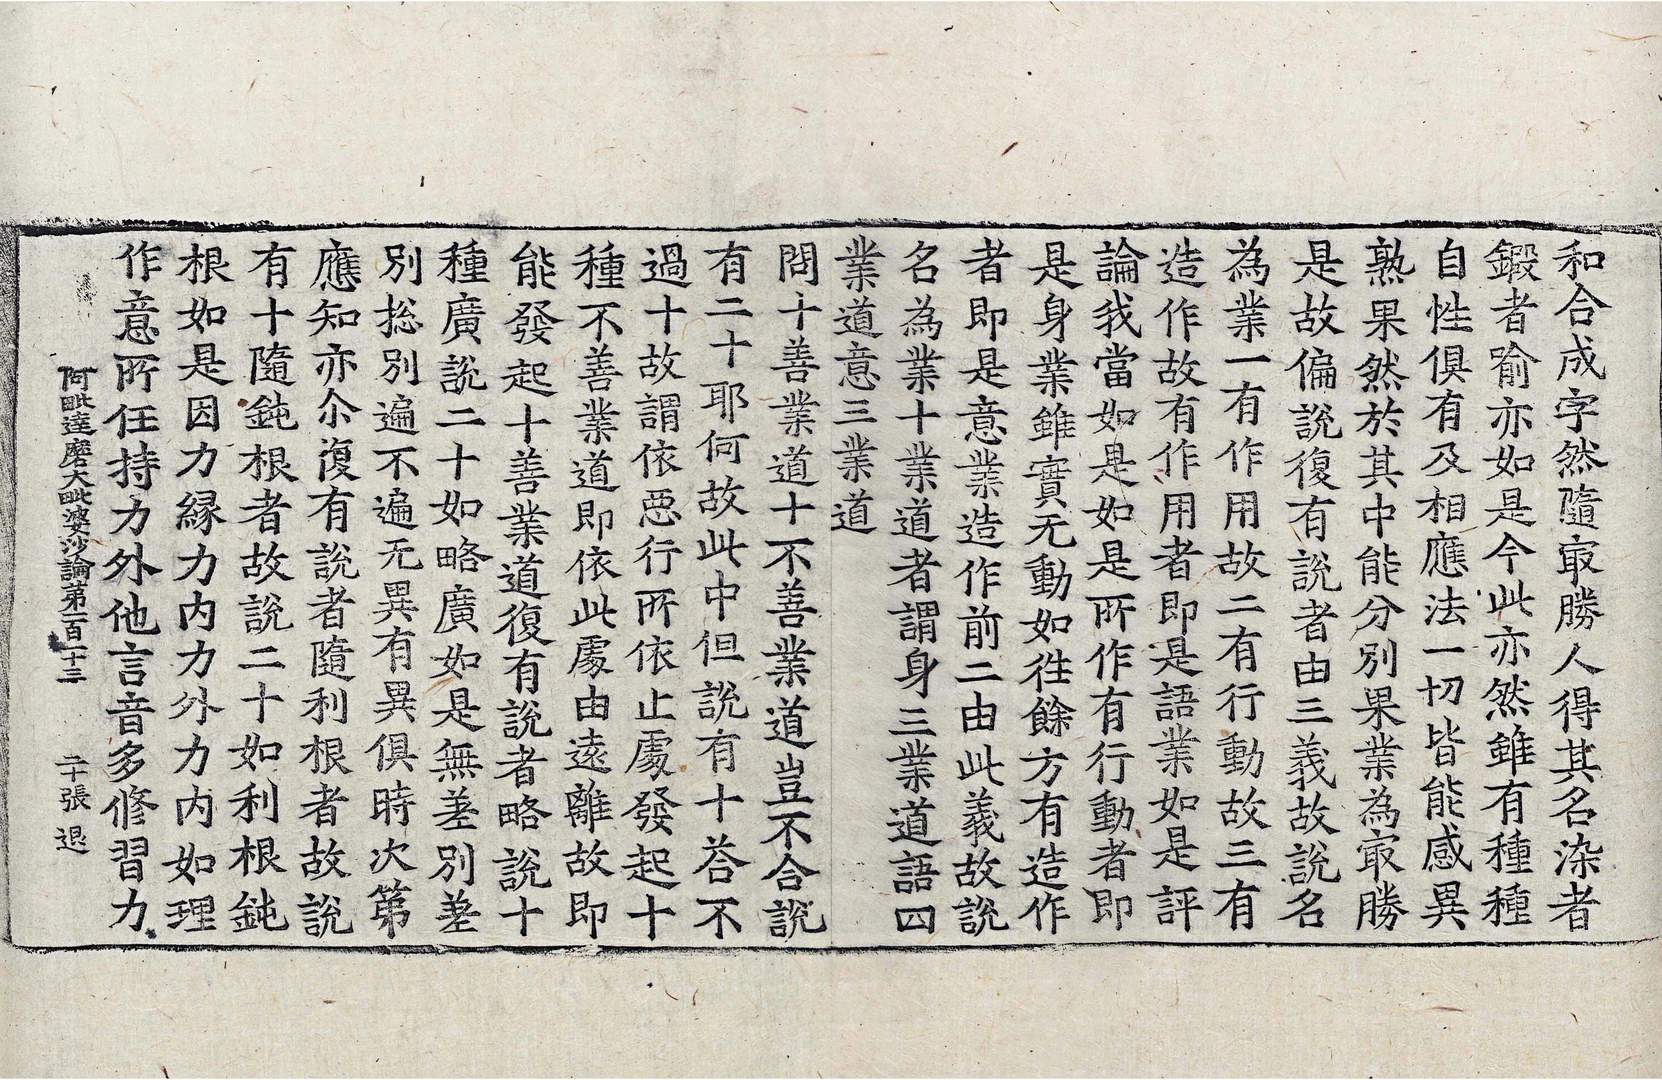 和合成字然隨㝡勝人得其名染者
鍛者喻亦如是今此亦然雖有種種
自性俱有及相應法一切皆能感異
熟果然於其中能分別果業為㝡勝
是故偏說復有說者由三義故說名
為業一有作用故二有行動故三有
造作故有作用者即是語業如是評
論我當如是如是所作有行動者即
是身業雖實无動如徃餘方有造作
者即是意業造作前二由此義故說
名為業十業道者謂身三業道語四
業道意三業道
問十善業道十不善業道豈不合說
有二十耶何故此中但說有十荅不
過十故謂依惡行所依止處發起十
種不善業道即依此處由遠離故即
能發起十善業道復有說者略說十
種廣說二十如略廣如是無差別差
別捴別遍不遍无異有異俱時次第
應知亦尒復有說者隨利根者故說
有十隨鈍根者故說二十如利根鈍
根如是因力縁力内力外力内如理
作意所任持力外他言音多修習力
阿毗達磨大毗婆沙論第一百一十三 二十張 退